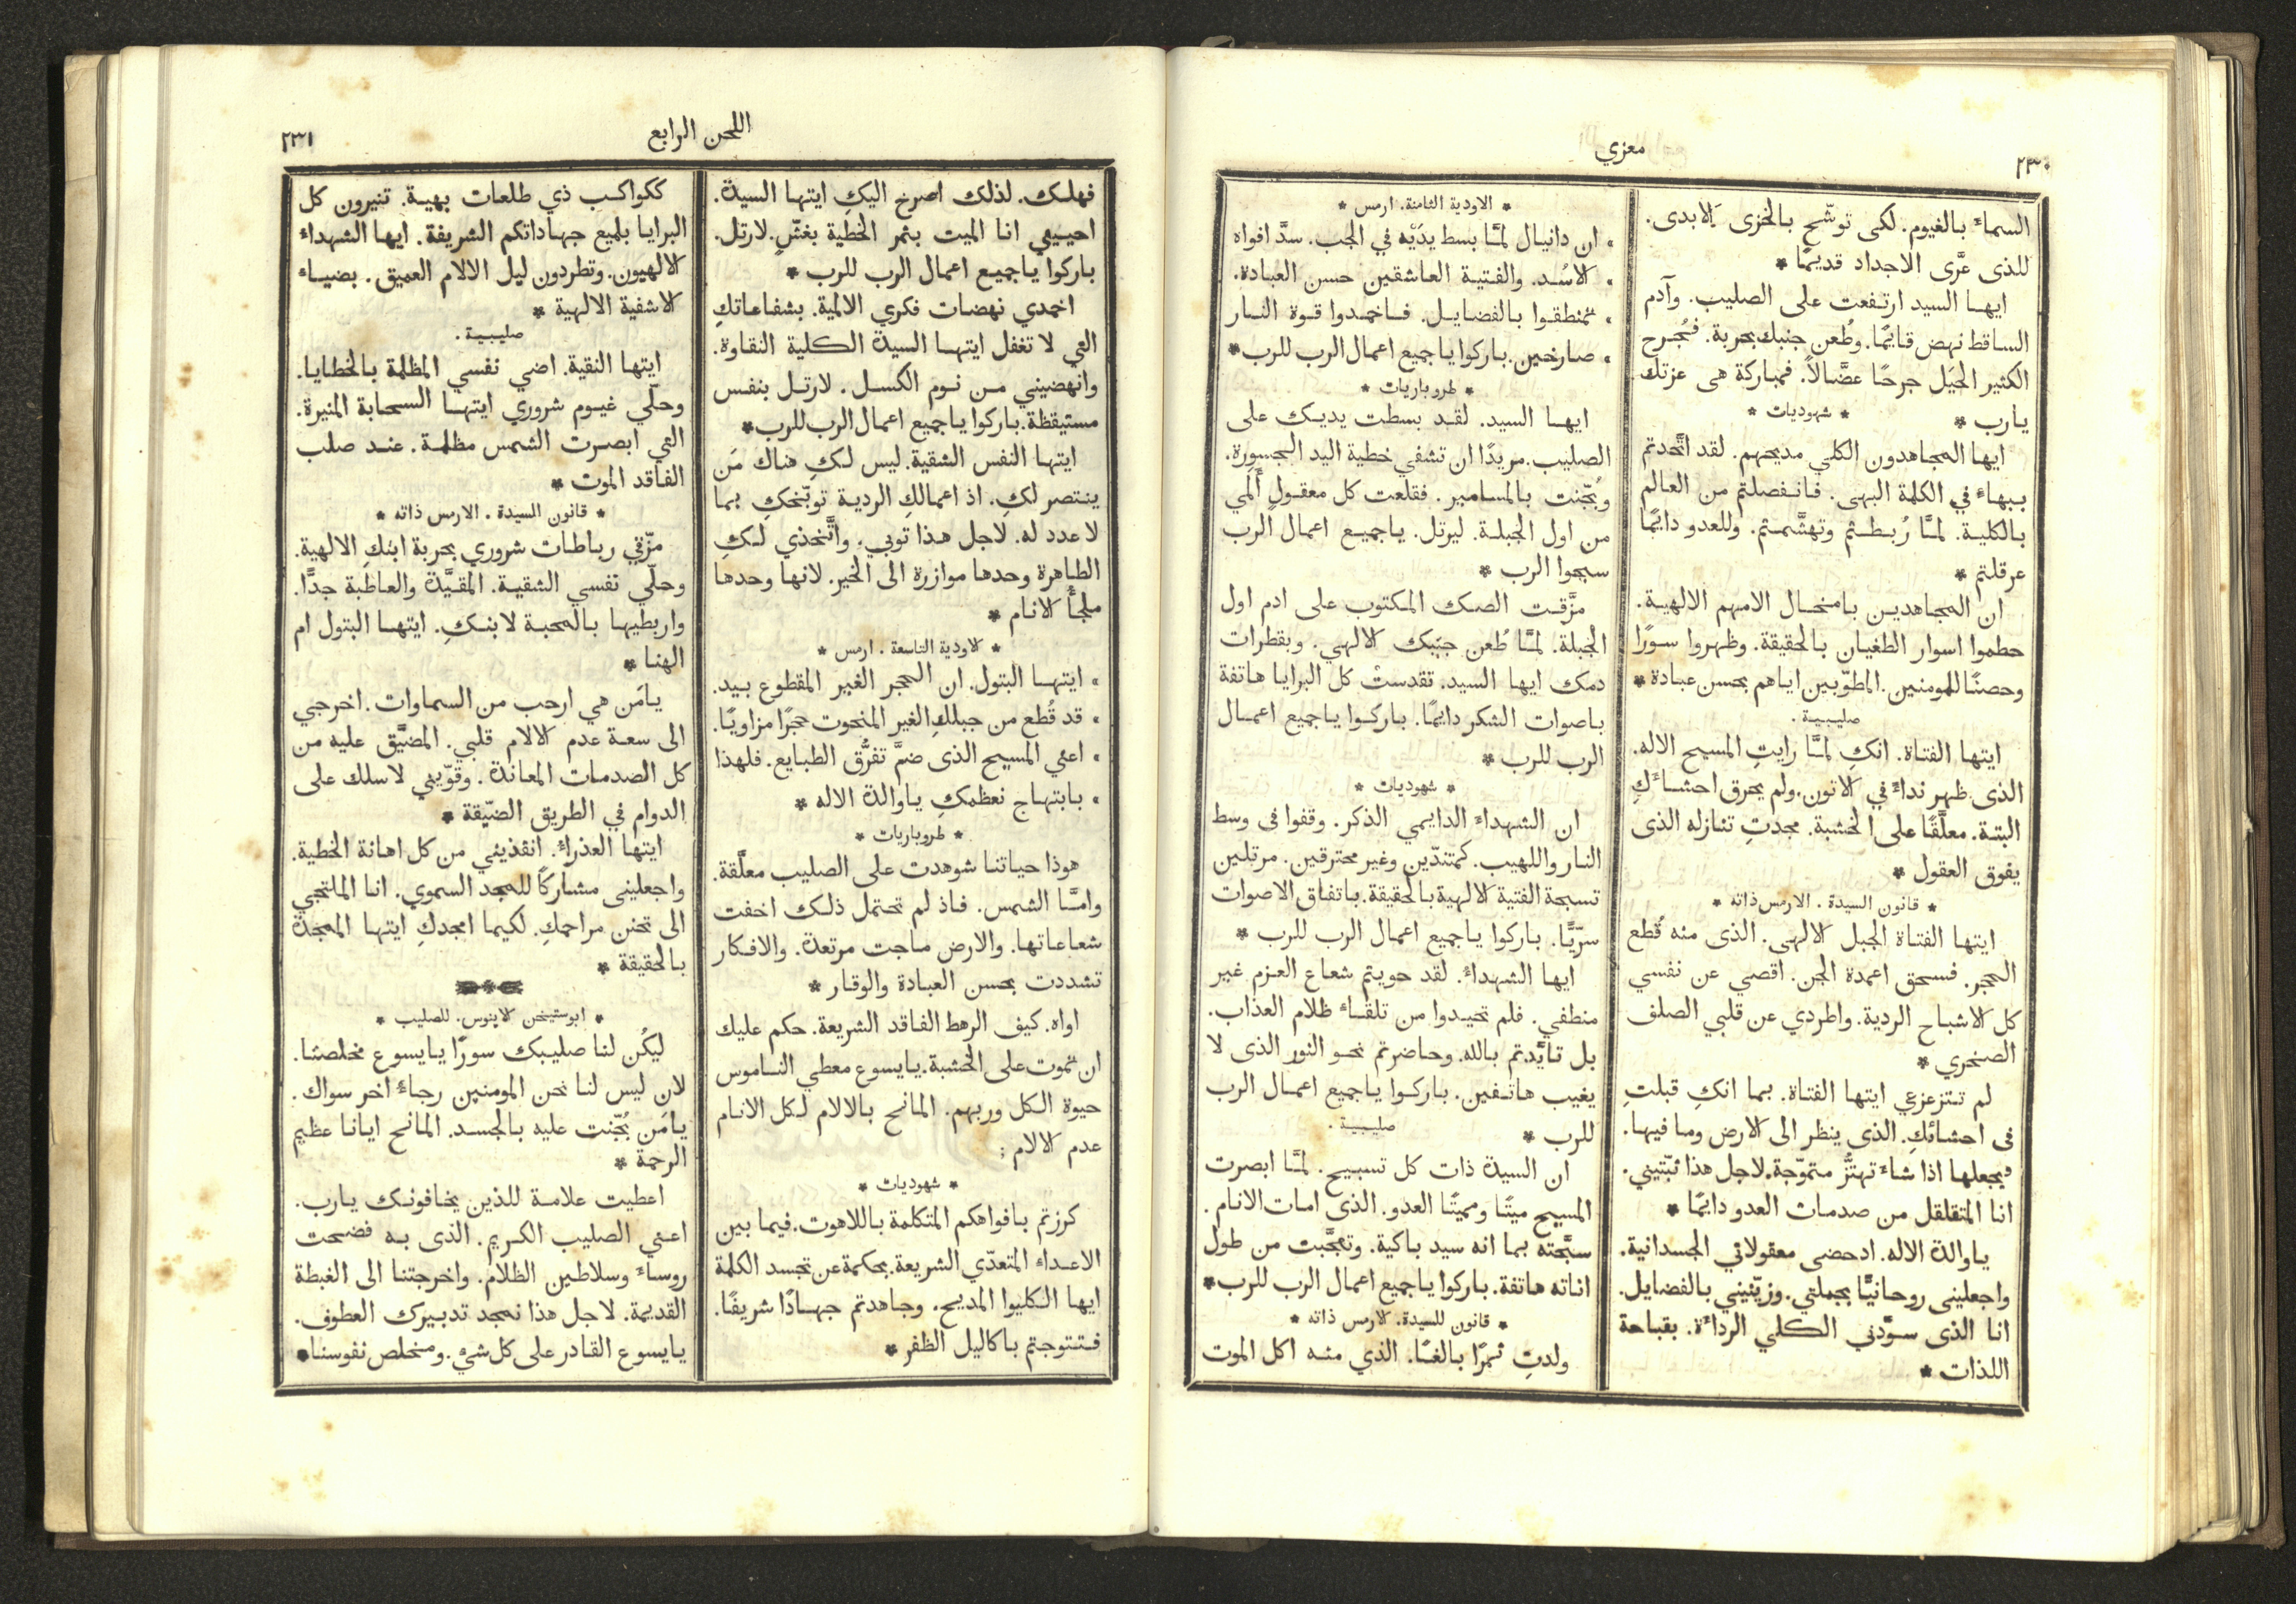 ٢٣٠
معزي
السماء بالغيوم. لكى توشّح بالخزى الابدى.
للذى عرَّى الاجداد قديمًا *
ايها السيد ارتفعت على الصليب. وآدم
الساقط نهض قايمًا. وطُعن جنبك بحربة. فجُرح
الكثير الحِيَل جرحًا عضَّالاً. فمباركة هى عزتك
يارب *
* شهوديات *
ايها المجاهدون الكلي مديحهم. لقد اتَّحدتم
ببهاء في الكلمة البهى. فانفصلتم من العالم
بالكلية. لمَّا رُبطتم وتهشَّمتم. وللعدو دايمًا
عرقلتم *
ان المجاهدين بامنحال الامهم الالهية.
حطموا اسوار الطغيان بالحقيقة. وظهروا سورًا
وحصنًا للمومنين. المطوّبين اياهم بحسن عبادة *
صليبية.
ايتها الفتاة. انكِ لمَّا رايتِ المسيح الاله.
الذى ظهر نداءً في الاتون. ولم يحرق احشاءكِ
البتة. معلَّقًا على الخشبة. مجدتِ تنازله الذى
يفوق العقول *
* قانون السيدة. الارمس ذاته *
ايتها الفتاة الجبل الالهى. الذى منه قُطع
الحجر. فسحق اعمدة الجن. اقصي عن نفسي
كل الاشباح الردية. واطردي عن قلبي الصلف
الصخري *
لم تتزعزعي ايتها الفتاة. بما انكِ قبلتِ
فى احشائكِ. الذى ينظر الى الارض وما فيها.
فيجعلها اذا شاء تهتزُّ متموّجة. لاجل هذا ثبّتيني.
انا المتقلقل من صدمات العدو دايمًا *
ياوالدة الاله. ادحضى معقولاتي الجسدانية.
واجعلينى روحانيًّا بجملتي. وزيّنيني بالفضايل.
انا الذى سوَّدني الكلي الرداءة. بقباحة
اللذات *
* الاودية الثامنة. ارمس *
• ان دانيال لمَّا بسط يدَيْه في الجب. سدَّ افواه
• الاسُد. والفتية العاشقين حسن العبادة.
• تمنطقوا بالفضايل. فاخمدوا قوة النار
• صارخين. باركوا ياجميع اعمال الرب للرب *
* طروباريات *
ايها السيد. لقد بسطت يديك على
الصليب. مريدًا ان تشفي خطية اليد الجسورة.
وبُجّنت بالمسامير. فقلعت كل معقولٍ أَلمي
من اول الجبلة. ليرتل. ياجميع اعمال الرب
سبحوا الرب *
مزَّقت الصك المكتوب على ادم اول
الجبلة. لمَّا طُعن جنبك الالهي. وبقطرات
دمك ايها السيد. تقدستْ كل البرايا هاتفة
باصوات الشكر دايمًا. باركوا ياجميع اعمال
الرب للرب *
* شهوديات *
ان الشهداء الدايمي الذكر. وقفوا فى وسط
النار واللهيب. كمتندّين وغير محترقين. مرتلين
تسبحة الفتية الالهية بالحقيقة. باتفاق الاصوات
سرّيًّا. باركوا ياجميع اعمال الرب للرب *
ايها الشهداءُ. لقد حويتم شعاع العزم غير
منطفي. فلم تحيدوا من تلقاء ظلام العذاب.
بل تايَّدتم بالله. وحاضرتم نحو النور الذى لا
يغيب هاتفين. باركوا ياجميع اعمال الرب
للرب *
صليبية.
ان السيدة ذات كل تسبيح. لمَّا ابصرت
المسيح ميتًا ومميتًا العدو. الذى امات الانام.
سبَّحته بما انه سيد باكية. وتعجَّبت من طول
اناته هاتفة. باركوا ياجميع اعمال الرب للرب *
* قانون للسيدة. الارمس ذاته *
ولدتِ ثمرًا بالغًا. الذي منه اكل الموت
اللحن الرابع
٢٣١
فهلك. لذلك اصرخ اليكِ ايتها السيدة.
احييني انا الميت بثمر الخطية بغشّ. لارتل.
باركوا ياجميع اعمال الرب للرب *
اخمدي نهضات فكري الالمية. بشفاعاتكِ
التي لا تغفل ايتها السيدة الكلية النقاوة.
وانهضيني من نوم الكسل. لارتل بنفس
مستيقظة. باركوا ياجميع اعمال الرب للرب *
ايتها النفس الشقية. ليس لكِ هناك مَن
ينتصر لكِ. اذ اعمالكِ الردية توبّخكِ بما
لا عدد له. لاجل هذا توبي. واتَّخذي لكِ
الطاهرة وحدها موازرة الى الخير. لانها وحدها
ملجأُ الانام *
* الاودية التاسعة. ارمس *
• ايتها البتول. ان الحجر الغير المقطوع بيد.
• قد قُطع من جبلكِ الغير المنحوت حجرًا مزاويًا.
• اعني المسيح الذى ضمَّ تفرُّق الطبايع. فلهذا
• بابتهاج نعظمكِ ياوالدة الاله *
* طروباريات *
هوذا حياتنا شوهدت على الصليب معلَّقة.
وامَّا الشمس. فاذ لم تحتمل ذلك اخفت
شعاعاتها. والارض ماجت مرتعدة. والافكار
تشددت بحسن العبادة والوقار *
اواه. كيف الرهط الفاقد الشريعة. حكم عليك
ان تموت على الخشبة. يايسوع معطي الناموس
حيوة الكل وربهم. المانح بالالام لكل الانام
عدم الالام :
* شهوديات *
كرزتم بافواهكم المتكلمة باللاهوت. فيما بين
الاعداء المتعدّي الشريعة. بحكمة عن تجسد الكلمة
ايها الكليوا المديح. وجاهدتم جهادًا شريفًا.
فتتوجتم باكاليل الظفر *
ككواكب ذي طلعات بهية. تنيرون كل
البرايا بلميع جهاداتكم الشريفة. ايها الشهداء
الالهيون. وتطردون ليل الالام العميق. بضياء
الاشفية الالهية *
صليبية.
ايتها النقية. اضي نفسي المظلمة بالخطايا.
وحلّي غيوم شروري ايتها السحابة المنيرة.
التي ابصرت الشمس مظلمة. عند صلب
الفاقد الموت *
* قانون السيدة. الارمس ذاته *
مزّقي رباطات شروري بحربة ابنكِ الالهية.
وحلّي نفسي الشقية. المقيَّدة والعاطبة جدًّا.
واربطيها بالمحبة لابنكِ. ايتها البتول ام
الهنا *
يامَن هي ارحب من السماوات. اخرجي
الى سعة عدم الالام قلبي. المضيَّق عليه من
كل الصدمات المعاندة. وقوّيني لاسلك على
الدوام في الطريق الضيّقة *
ايتها العذراءُ. انقذيني من كل اهانة الخطية.
واجعلينى مشاركًا للمجد السموي. انا الملتجي
الى تحنن مراحمكِ. لكيما امجدكِ ايتها الممجدة
بالحقيقة *
* ابوستيخن لاينوس. للصليب *
ليكُن لنا صليبك سورًا يايسوع مخلصنا.
لان ليس لنا نحن المومنين رجاءً اخر سواك.
يامَن بُجّنت عليه بالجسد. المانح ايانا عظيم
الرحمة *
اعطيت علامة للذين يخافونك يارب.
اعني الصليب الكريم. الذى به فضحت
روساء وسلاطين الظلام. واخرجتنا الى الغبطة
القديمة. لاجل هذا نمجد تدبيرك العطوف.
يايسوع القادر على كل شيءٍ. ومخلص نفوسنا *